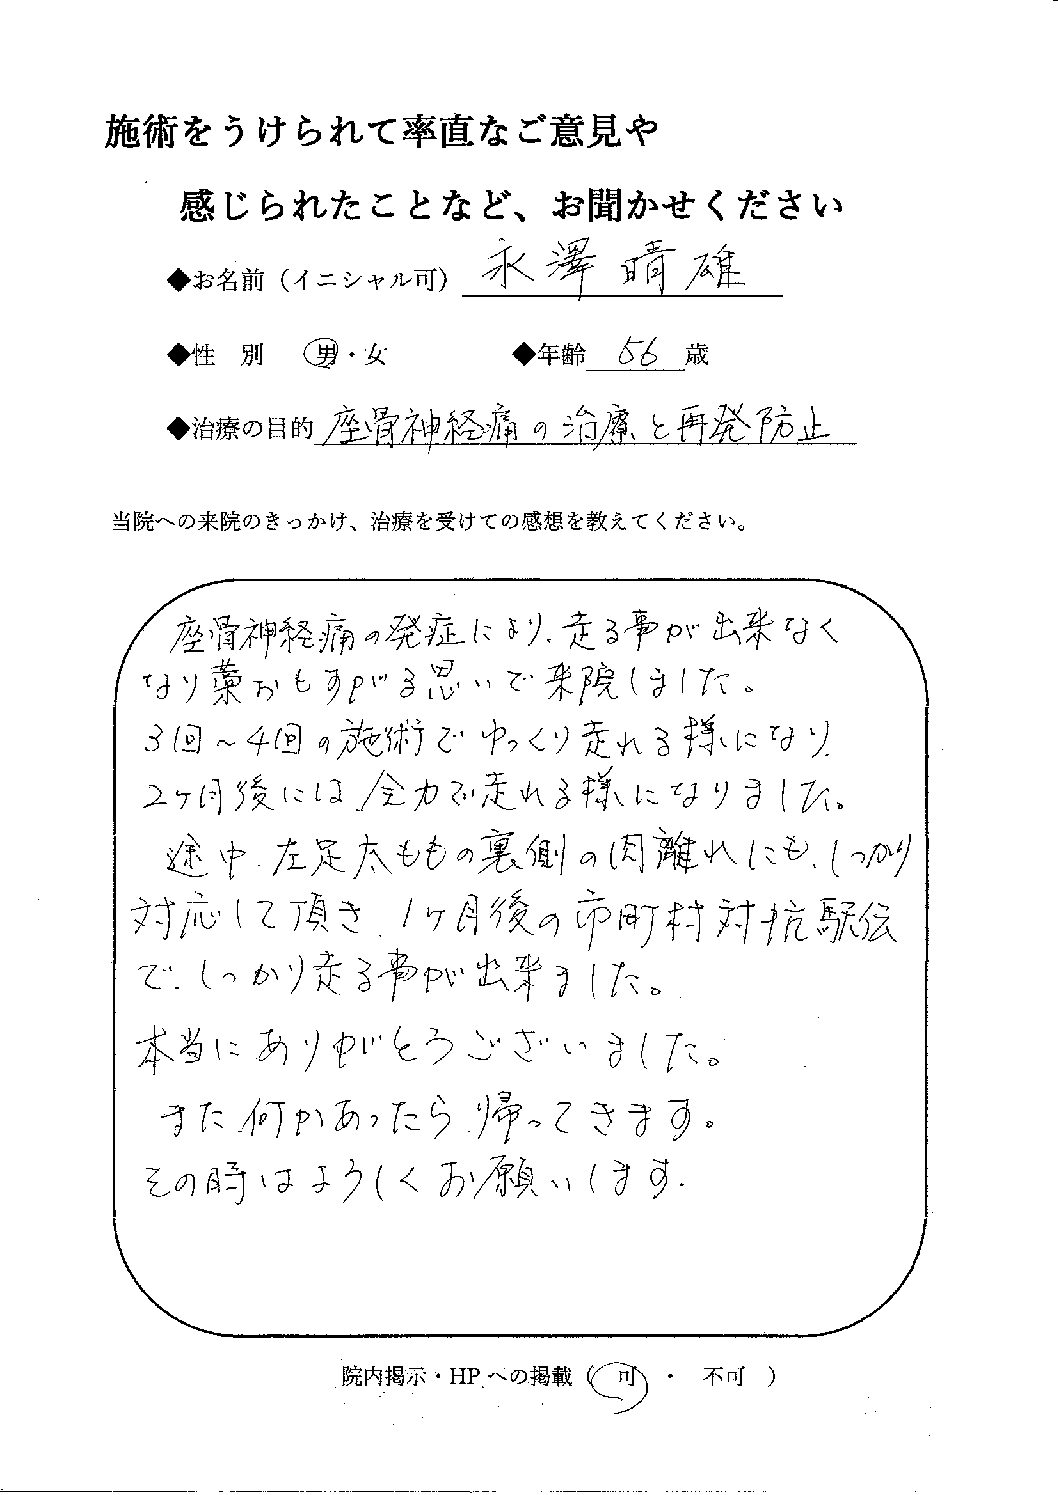 施術をうけられて率直なご意見や
感じられたことなど、お聞かせください
◆お名前（イニシャル可）永澤 晴雄
◆性　別　男・女　◆年齢 56 歳
◆治療の目的 座骨神経痛の治療と再発防止
当院への来院のきっかけ、治療を受けての感想を教えてください。
座骨神経痛の発症により、走る事が出来なく
なり藁おもすがる思いで来院しました。
3回〜4回の施術でゆっくり走れる様になり、
2ヶ月後には全力で走れる様になりました。
途中、左足太ももの裏側の肉離れにも、しっかり
対応して頂き、1ヶ月後の市町村対抗駅伝
で、しっかり走る事が出来ました。
本当にありがとうございました。
また何かあったら、帰ってきます。
その時はようしくお願いします。
院内掲示・HPへの掲載（ 可 ・ 不可 ）